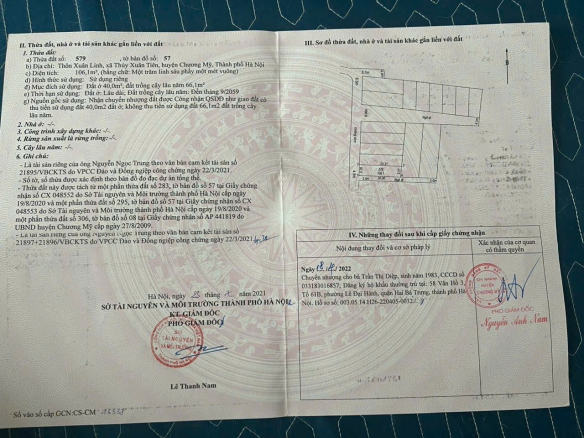 II. Thửa đất, nhà ở và tài sản khác gắn liền với đất
1. Thửa đất:
a) Thửa đất số: 579 , tờ bản đồ số: 57
b) Địa chỉ: Thôn Xuân Linh, xã Thủy Xuân Tiên, huyện Chương Mỹ, Thành phố Hà Nội
c) Diện tích: 106,1m², (bằng chữ: Một trăm linh sáu phẩy một mét vuông)
d) Hình thức sử dụng: Sử dụng riêng
đ) Mục đích sử dụng: Đất ở 40,0m², đất trồng cây lâu năm 66,1m²
e) Thời hạn sử dụng: Đất ở: Lâu dài; Đất trồng cây lâu năm: Đến tháng 9/2059
g) Nguồn gốc sử dụng: Nhận chuyển nhượng đất được Công nhận QSDĐ như giao đất có
thu tiền sử dụng đất 40,0m2 đất ở; không thu tiền sử dụng đất 66,1m2 đất trồng cây
lâu năm.
2. Nhà ở: -/-
3. Công trình xây dựng khác: -/-
4. Rừng sản xuất là rừng trồng: -/-
5. Cây lâu năm: -/-
6. Ghi chú:
- Là tài sản riêng của ông Nguyễn Ngọc Trung theo văn bản cam kết tài sản số
21895/VBCKTS do VPCC Đào và Đồng nghiệp công chứng ngày 22/3/2021.
- Số tờ, số thửa được xác định theo bản đồ đo đạc dự án tổng thể.
- Thửa đất này được tách từ một phần thửa đất số 283, tờ bản đồ số 57 tại Giấy chứng
nhận số CX 048552 do Sở Tài nguyên và Môi trường thành phố Hà Nội cấp ngày
19/8/2020 và một phần thửa đất số 295, tờ bản đồ số 57 tại Giấy chứng nhận số CX
048553 do Sở Tài nguyên và Môi trường thành phố Hà Nội cấp ngày 19/8/2020 và
một phần thửa đất số 306, tờ bản đồ số 08 tại Giấy chứng nhận số AP 441819 do
UBND huyện Chương Mỹ cấp ngày 27/8/2009.
- Là tài sản riêng của ông Nguyễn Ngọc Trung theo văn bản cam kết tài sản số
21897+21896/VBCKTS do VPCC Đào và Đồng nghiệp công chứng ngày 22/3/2021
Hà Nội, ngày 23 tháng 2021
SỞ TÀI NGUYÊN VÀ MÔI TRƯỜNG THÀNH PHỐ HÀ NỘI
KT.GIÁM ĐỐC
PHÓ GIÁM ĐỐC
SỞ
TÀI NGUYÊN
VÀ MÔI TRƯỜNG
Lê Thanh Nam
Số vào sổ cấp GCN:CS-CM
III. Sơ đồ thửa đất, nhà ở và tài sản khác gắn liền với đất
IV. Những thay đổi sau khi cấp giấy chứng nhận
Nội dung thay đổi và cơ sở pháp lý
Xác nhận của cơ quan
có thẩm quyền
2022
Chuyển nhượng cho bà Trần Thị Diệp, sinh năm 1983, CCCD số
033183016857; Đăng ký hộ khẩu thường trú tại: 58 Vân Hồ 3,
Tổ 61B, phường Lê Đại Hành, quận Hai Bà Trưng, thành phố Hà
Nội
PHÓ GIÁM ĐỐC
Nguyễn Anh Nam